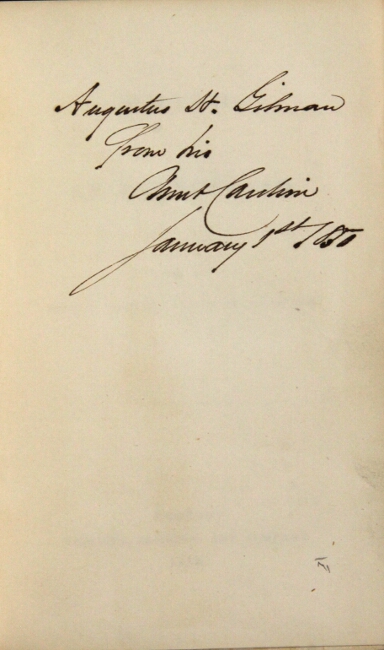 Augustus H. Gilman
from his
Aunt Caroline
January 1st 1850